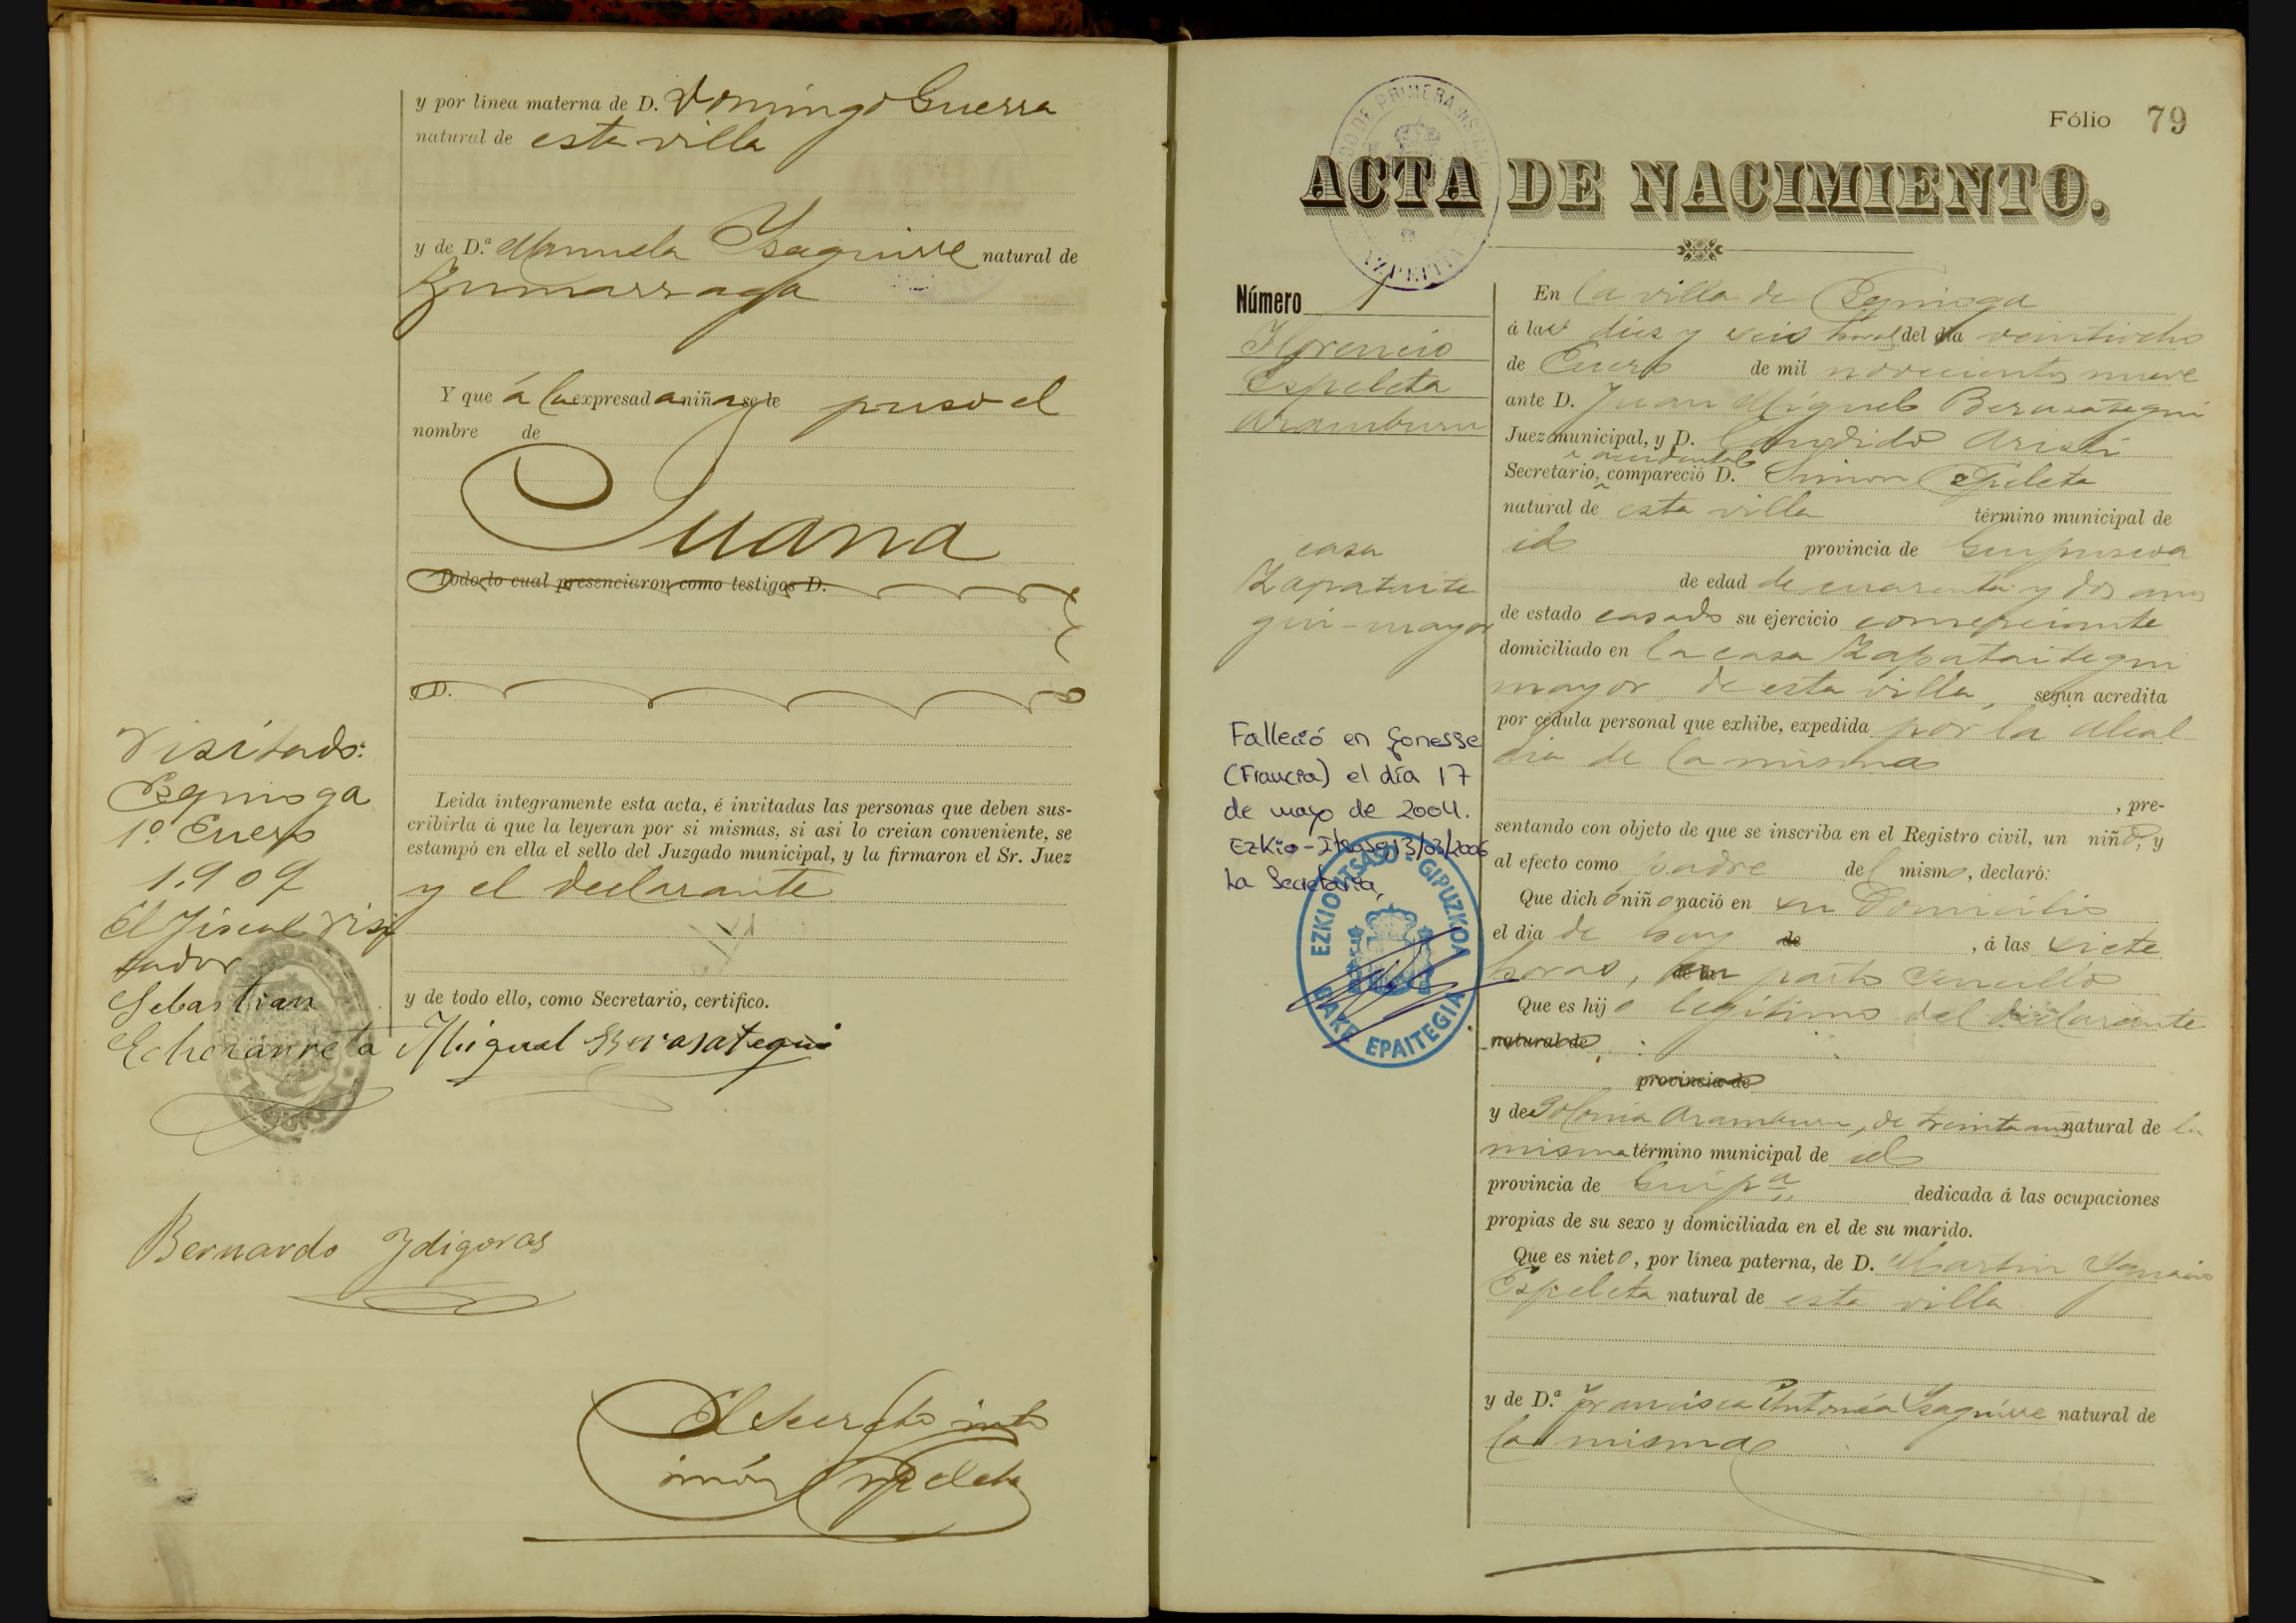 y por línea materna de D. Domingo Guerra
natural de esta villa
y de D.ª Manuela Ysaguirre natural de
Zumarraga
Y que á la expresada niña se le puso el
nombre de
Juana
Todo lo cual presenciaron como testigos D.
y D.
Leida íntegramente esta acta, é invitadas las personas que deben sus-
cribirla á que la leyeran por si mismas, si asi lo creian conveniente, se
estampó en ella el sello del Juzgado municipal, y la firmaron el Sr. Juez
y el declarante
y de todo ello, como Secretario, certifico.
Visitado:
Ezquioga
1.º Enero
1.909
El Fiscal visi
tador
Sebastian
Echezarreta
Miguel Berasategui
Bernardo Ydigoras
El Secreto into
Simón Ezpeleta
Fólio 79
JUZGADO DE PRIMERA INSTANCIA
AZPEITIA
ACTA DE NACIMIENTO.
Número 1
Florencio
Espeleta
Aramburu
casa
Zapataite
gui-mayor
Falleció en Gonesse
(Francia) el día 17
de mayo de 2004.
Ezkio-Itsaso, 13/03/2006
La Secretaria,
EZKIO-ITSASO - GIPUZKOA
BAKE EPAITEGIA
En la villa de Ezquioga
á las diez y seis horas del dia veintiocho
de Enero de mil novecientos nueve
ante D. Juan Miguel Berasategui
Juez municipal, y D. Candido Aristi
accidental
Secretario, compareció D. Simon Ezpeleta
natural de esta villa término municipal de
id provincia de Guipuzcoa
de edad de cuarenta y dos años
de estado casado su ejercicio comerciante
domiciliado en la casa Zapataitegui
mayor de esta villa, según acredita
por cédula personal que exhibe, expedida por la Alcal
dia de la misma
, pre-
sentando con objeto de que se inscriba en el Registro civil, un niño, y
al efecto como padre del mismo, declaró:
Que dicho niño nació en su domicilio
el dia de hoy de , á las siete
horas, de un parto sencillo
Que es hijo legítimo del declarante
natural de
provincia de
y de Polonia Aramburu, de treinta años natural de la
misma término municipal de id
provincia de Guip.ª dedicada á las ocupaciones
propias de su sexo y domiciliada en el de su marido.
Que es nieto, por línea paterna, de D. Martin Ygnacio
Espeleta natural de esta villa
y de D.ª Francisca Antonia Ysaguirre natural de
la misma